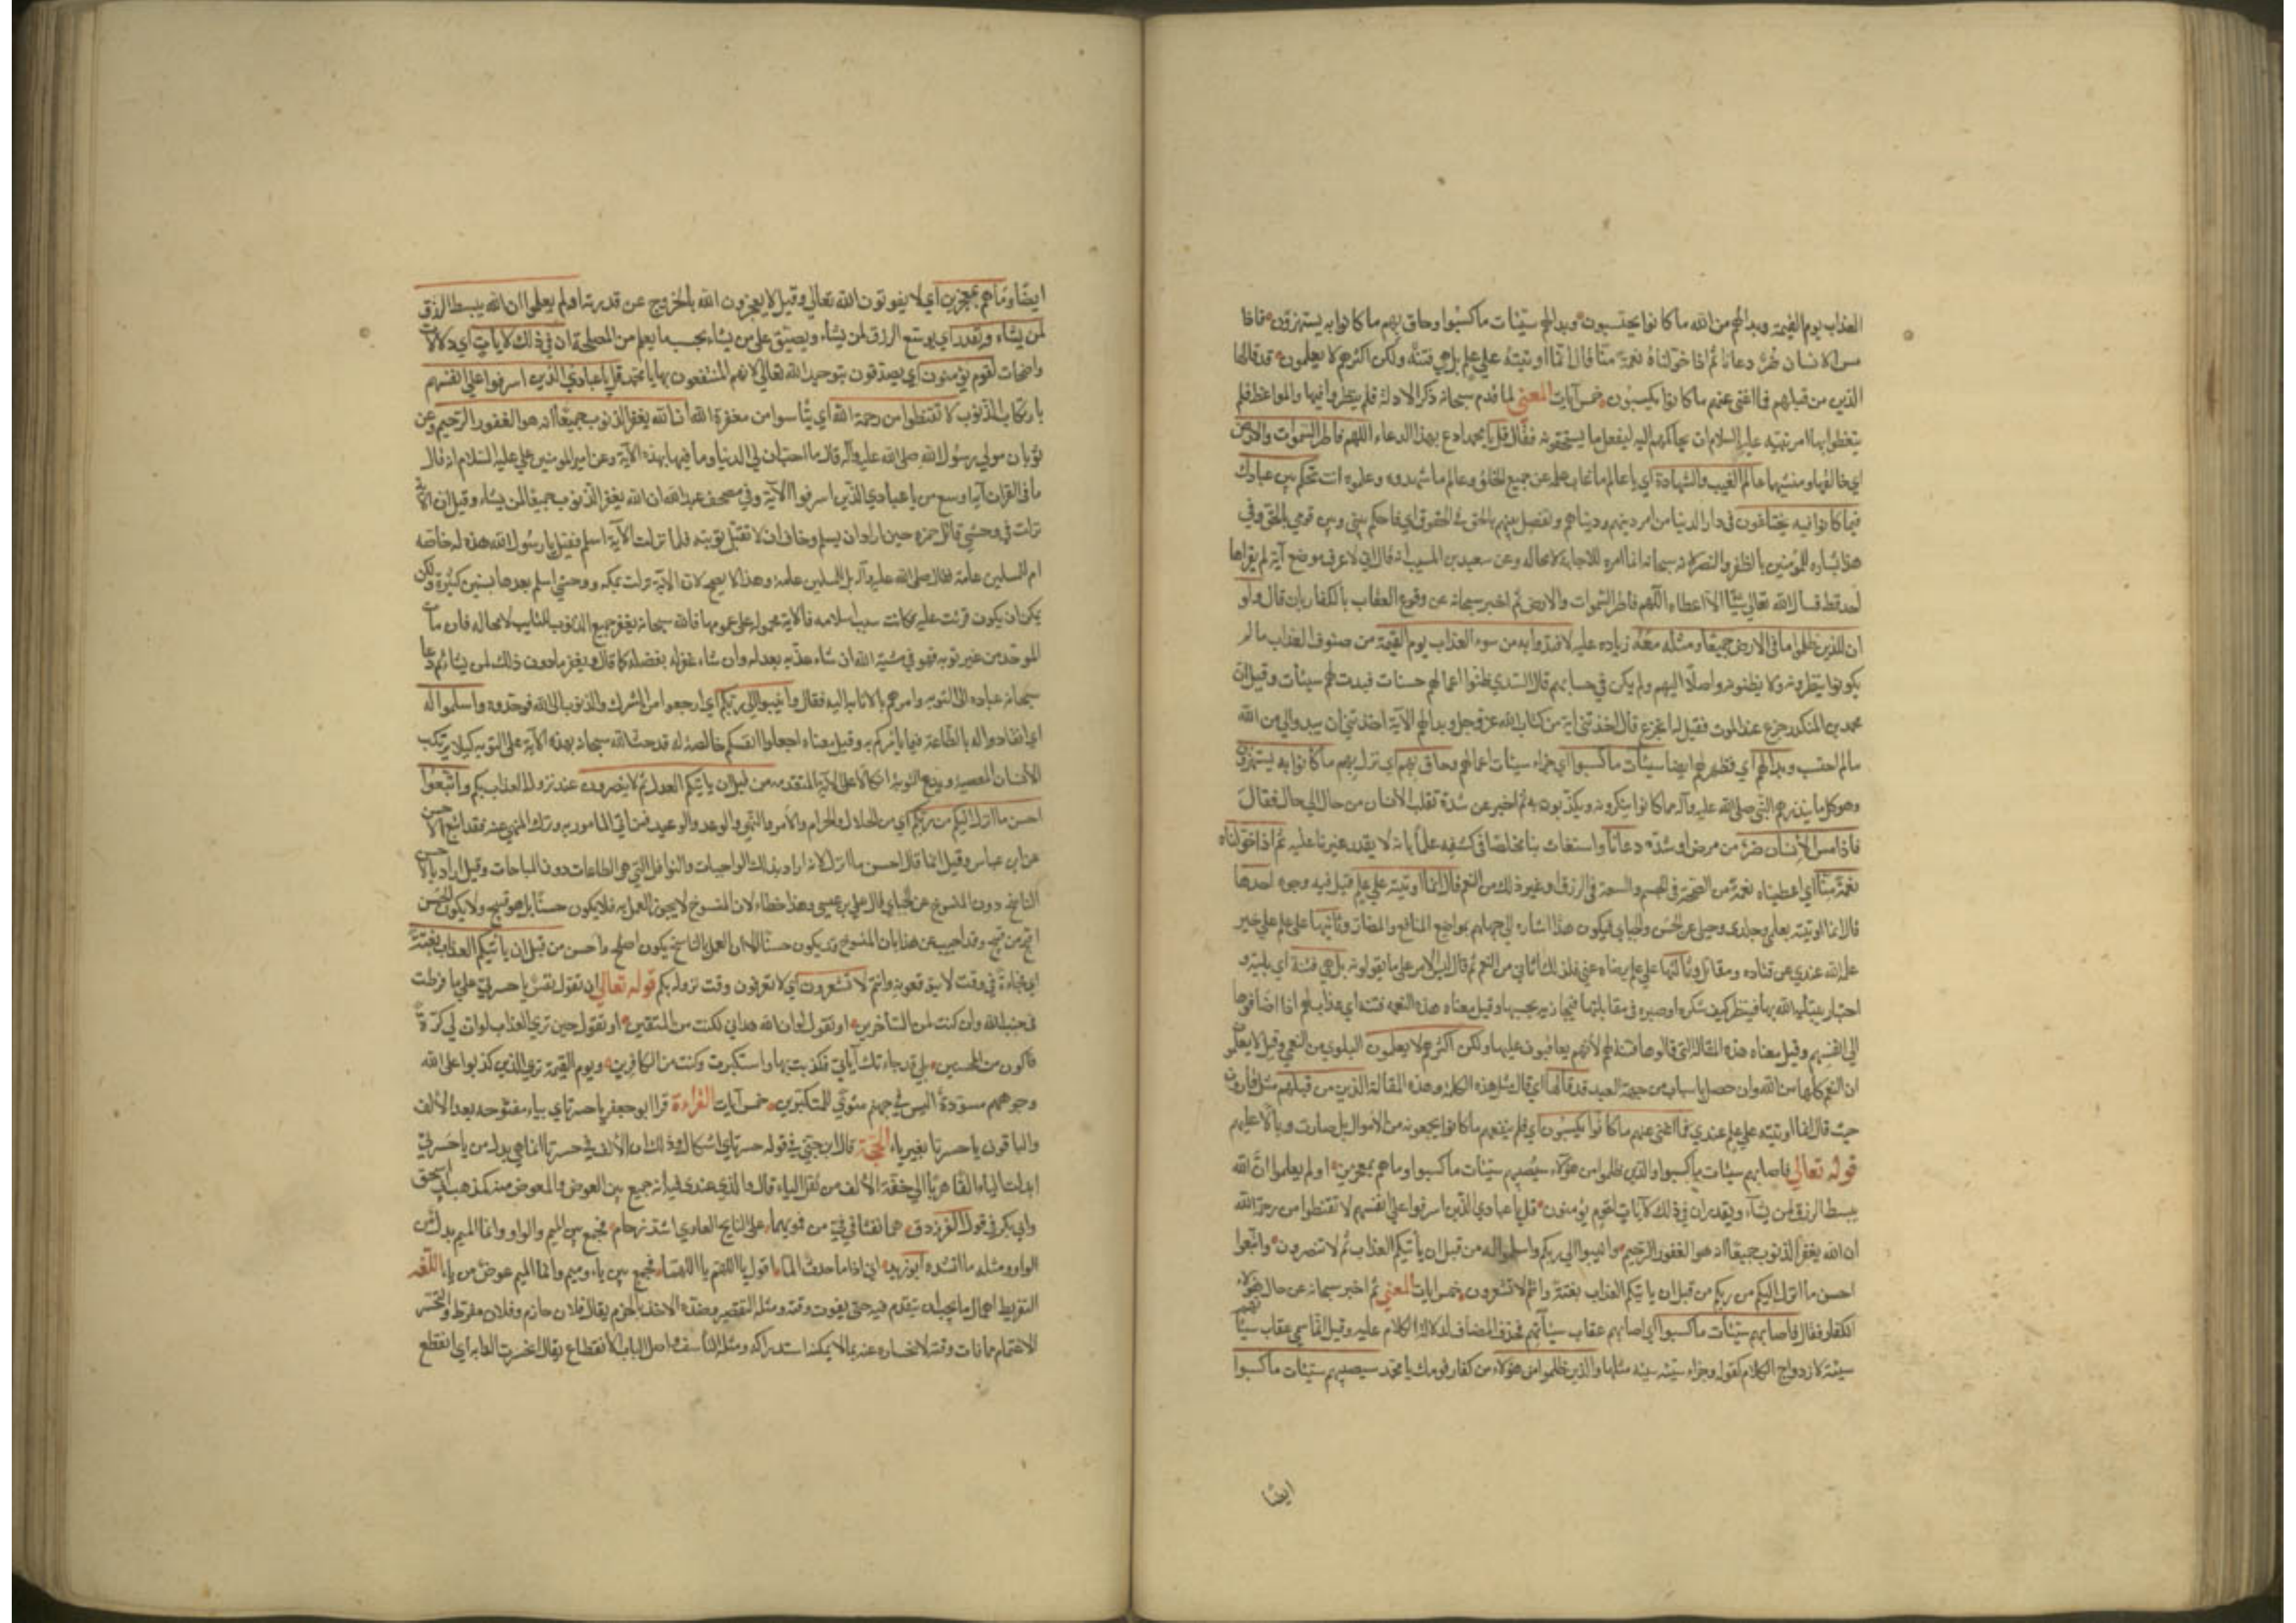 العذاب يوم القيمة وبدا لهم من الله ما كانوا يحتسبون وبدا لهم سيئات ما كسبوا وحاق بهم ما كانوا به يستهزؤن فاذا
مس الانسان ضر دعانا ثم اذا خولناه نعمة منا قال انما اوتيته على علم بل هي فتنة ولكن اكثرهم لا يعلمون قد قالها
الذين من قبلهم فما اغنى عنهم ما كانوا يكسبون خمس آيات المعنى لما قدم سبحانه ذكر الادلة فلم ينظروا فيها والمواعظ فلم
يتعظوا بها امر نبيه عليه السلام ان يحاكمهم اليه ليفعل ما يستحقونه فقال قل يا محمد ادع بهذا الدعاء اللهم فاطر السموات والارض
اي خالقها ومنشيها عالم الغيب والشهادة اي يا عالم ما غاب علمه عن جميع الخلائق وعالم ما شهدوه وعلموه انت تحكم بين عبادك
فيما كانوا فيه يختلفون في دار الدنيا من امر دينهم ودنياهم وتفصل بينهم بالحق في الحقوق اي فاحكم بيني وبين قومي بالحق وفي
هذا بشارة للمؤمنين بالظفر والنصر لانه سبحانه انما امره للاجابة لا محاله وعن سعيد بن المسيب انه قال اني لاعرف موضع آية لم يقراها
احد قط فسأل الله تعالى شيئا الا اعطاه اللهم فاطر السموات والارض ثم اخبر سبحانه عن وقوع العقاب بالكفار بان قال ولو
ان للذين ظلموا ما في الارض جميعا ومثله معه زيادة عليه لافتدوا به من سوء العذاب يوم القيمة من صنوف العذاب ما لم
يكونوا ينتظرونه ولا يظنونه واصلا اليهم ولم يكن في حسابهم قال السدي ظنوا اعمالهم حسنات فبدت لهم سيئات وقيل ان
محمد بن المنكدر جزع عند الموت فقيل له اتجزع قال اخذتني آية من كتاب الله عز وجل وبدا لهم الآية اخذتني ان يبدو لي من الله
ما لم احتسب وبدا لهم اي فظهر لهم ايضا سيئات ما كسبوا اي جزاء سيئات اعمالهم وحاق بهم اي نزل بهم ما كانوا به يستهزؤن
وهو كل ما ينذرهم النبي صلى الله عليه وآله مما كانوا ينكرونه ويكذبون به ثم اخبر عن شدة تقلب الانسان من حال الى حال فقال
فاذا مس الانسان ضر من مرض او شدة دعانا واستغاث بنا مخلصا في كشفه علما بانه لا يقدر غيرنا عليه ثم اذا خولناه
نعمة منا اي اعطيناه نعمة من الصحة في الجسم والسعة في الرزق او غير ذلك من النعم قال انما اوتيته على علم قيل فيه وجوه احدها
قال انما اوتيته بعلمي وجلدي وحيلي عن الحسن والجبائي فيكون هذا اشارة الى جهلهم بمواضع المنافع والمضار وثانيها على علم على خير
علمه الله عندي عن قتاده ومقاتل وثالثها على علم يرضاه عني فلذلك آتاني من النعم ثم قال ليس الامر على ما يقولونه بل هي فتنة اي بلية و
اختبار يبتليه الله بها فينظر كيف شكره او صبره في مقابلتها فيجازيه بحسبها وقيل معناه هذه النعمة فتنة اي عذاب لهم اذا اضافوها
الى انفسهم وقيل معناه هذه المقالة التي قالوها فتنة لهم لأنهم يعاقبون عليها ولكن اكثرهم لا يعلمون البلوى من النعمى وقيل لا يعلمون
ان النعم كلها من الله وان حصل باسباب من جهة العبد قد قالها اي قال مثل هذه الكلمة وهذه المقالة الذين من قبلهم مثل قارون
حيث قال انما اوتيته على علم عندي فما اغنى عنهم ما كانوا يكسبون اي فلم ينفعهم ما كانوا يجمعونه من الاموال بل صارت وبالا عليهم
قوله تعالى فاصابهم سيئات ما كسبوا والذين ظلموا من هؤلاء سيصيبهم سيئات ما كسبوا وما هم بمعجزين اولم يعلموا ان الله
يبسط الرزق لمن يشاء ويقدر ان في ذلك لآيات لقوم يؤمنون قل يا عبادي الذين اسرفوا على انفسهم لا تقنطوا من رحمة الله
ان الله يغفر الذنوب جميعا انه هو الغفور الرحيم وانيبوا الى ربكم واسلموا له من قبل ان يأتيكم العذاب ثم لا تنصرون واتبعوا
احسن ما انزل اليكم من ربكم من قبل ان يأتيكم العذاب بغتة وانتم لا تشعرون خمس آيات المعنى ثم اخبر سبحانه عن حال هؤلاء
الكفار فقال فاصابهم سيئات ما كسبوا اي اصابهم عقاب سيآتهم فحذف المضاف لدلالة الكلام عليه وقيل انما سمي عقاب سيئاتهم
سيئة لازدواج الكلام كقوله وجزاء سيئة سيئة مثلها والذين ظلموا من هؤلاء من كفار قومك يا محمد سيصيبهم سيئات ما كسبوا
ايضا
ايضا وما هم بمعجزين اي لا يفوتون الله تعالى وقيل لا يعجزون الله بالخروج عن قدرته اولم يعلموا ان الله يبسط الرزق
لمن يشاء ويقدر اي يوسع الرزق لمن يشاء ويضيق على من يشاء بحسب ما يعلم من المصلحة ان في ذلك لآيات اي دلالات
واضحات لقوم يؤمنون اي يصدقون بتوحيد الله تعالى لانهم المنتفعون بها يا محمد قل يا عبادي الذين اسرفوا على انفسهم
بارتكاب الذنوب لا تقنطوا من رحمة الله اي لا تيأسوا من مغفرة الله ان الله يغفر الذنوب جميعا انه هو الغفور الرحيم وعن
ثوبان مولى رسول الله صلى الله عليه وآله قال ما احب ان لي الدنيا وما فيها بهذه الآية وعن امير المؤمنين علي عليه السلام انه قال
ما في القرآن آية اوسع من يا عبادي الذين اسرفوا الآية وفي مصحف عبد الله ان الله يغفر الذنوب جميعا لمن يشاء وقيل ان الآية
نزلت في وحشي قاتل حمزه حين اراد ان يسلم وخاف ان لا تقبل توبته فلما نزلت الآية اسلم فقيل يا رسول الله هذه له خاصه
ام للمسلمين عامة فقال صلى الله عليه وآله بل للمسلمين عامة وهذا لا يصح لان الآية نزلت بمكه ووحشي اسلم بعدها بسنين كثيرة ولكن
يمكن ان يكون قرئت عليه فكانت سبب اسلامه فالآية محمولة على عمومها فالله سبحانه يغفر جميع الذنوب للتايب لا محاله فان مات
الموحد من غير توبه فهو في مشية الله ان شاء عذبه بعدله وان شاء غفر له بفضله كما قال ويغفر ما دون ذلك لمن يشاء ثم دعا
سبحانه عباده الى التوبه وامرهم بالانابه اليه فقال وانيبوا الى ربكم اي ارجعوا من الشرك والذنوب الى الله فوحدوه واسلموا له
اي انقادوا له بالطاعة فيما يأمركم به وقيل معناه اجعلوا انفسكم خالصة له قد حث الله سبحانه بهذه الآية على التوبه كيلا يرتكب
الانسان المعصية ويدع التوبة اتكالا على الآية المتقدمه من قبل ان يأتيكم العذاب ثم لا تنصرون عند نزول العذاب بكم واتبعوا
احسن ما انزل اليكم من ربكم اي من الحلال والحرام والأمر والنهي والوعد والوعيد فمن اتى المأمور به وترك المنهي عنه فقد اتبع الاحسن
عن ابن عباس وقيل انما قال احسن ما انزل لانه اراد بذلك الواجبات والنوافل التي هي الطاعات دون المباحات وقيل اراد بالاحسن
الناسخ دون المنسوخ عن الجبائي قال علي بن عيسى وهذا خطاء لان المنسوخ لا يجوز العمل به فلا يكون حسنا بل هو قبيح ولا يكون الحسن
احسن من قبيح وقد اجيب عن هذا بان المنسوخ قد يكون حسنا الا ان العمل بالناسخ يكون اصلح واحسن من قبل ان يأتيكم العذاب بغتة
اي فجاءة في وقت لا يتوقعونه وانتم لا تشعرون اي لا تعرفون وقت نزوله بكم قوله تعالى ان تقول نفس يا حسرتى على ما فرطت
في جنب الله وان كنت لمن الساخرين او تقول لو ان الله هداني لكنت من المتقين او تقول حين ترى العذاب لو ان لي كرة
فاكون من المحسنين بلى قد جاءتك آياتي فكذبت بها واستكبرت وكنت من الكافرين ويوم القيمة ترى الذين كذبوا على الله
وجوههم مسودة اليس في جهنم مثوى للمتكبرين خمس آيات القراءة قرا ابو جعفر يا حسرتاي بياء مفتوحه بعد الألف
والباقون يا حسرتا بغير ياء الحجة قال ابن جني في قوله حسرتاي اشكال وذلك ان الألف في حسرتا انما هي بدل من يا حسرتي
ابدلت الياء الفا هربا الى خفة الألف من ثقل الياء قال والذي عندي فيه انه جمع بين العوض والمعوض منه كمذهب ابي اسحق
وابي بكر في قول الفرزدق هما نفثا في في من فمويهما على النابح العاوي اشد رجام فجمع بين الميم والواو وانما الميم بدل من
الواو ومثله ما انشده ابو زيد اني اذا ما حدث الما اقول يا اللهم يا اللهما فجمع بين ياء وميم وانما الميم عوض من يا اللغة
التفريط اهمال ما يجب ان يتقدم فيه حتى يفوت وقته ومثله التقصير وضده الاخذ بالحزم يقال فلان حازم وفلان مفرط والتحسر
الاغتمام مما فات وقته لانحساره عنه بما لا يمكنه استدراكه ومثله التأسف واصل الباب الانقطاع يقال انحسرت الدابه اي انقطع